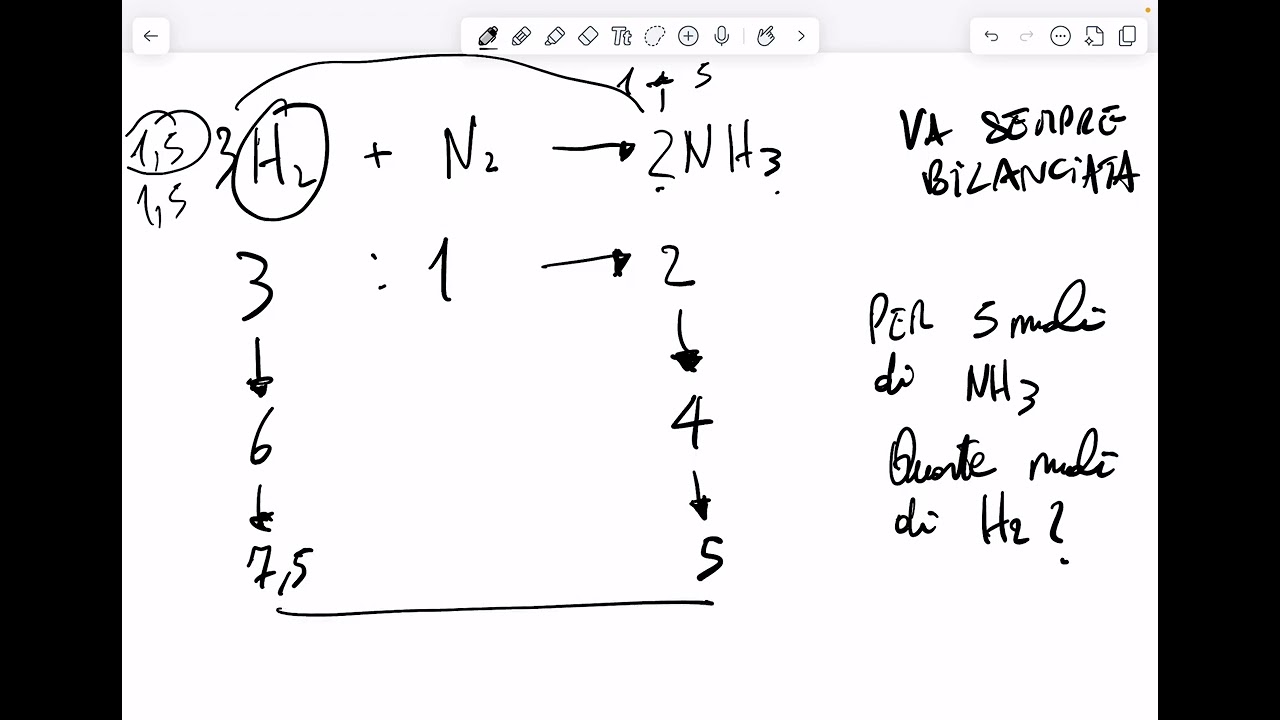 Tt
1 5
1,5 3H2 + N2 → 2NH3
1,5
3 : 1 → 2
6 4
7,5 5
VA SEMPRE
BILANCIATA
PER 5 moli
di NH3
Quante moli
di H2?